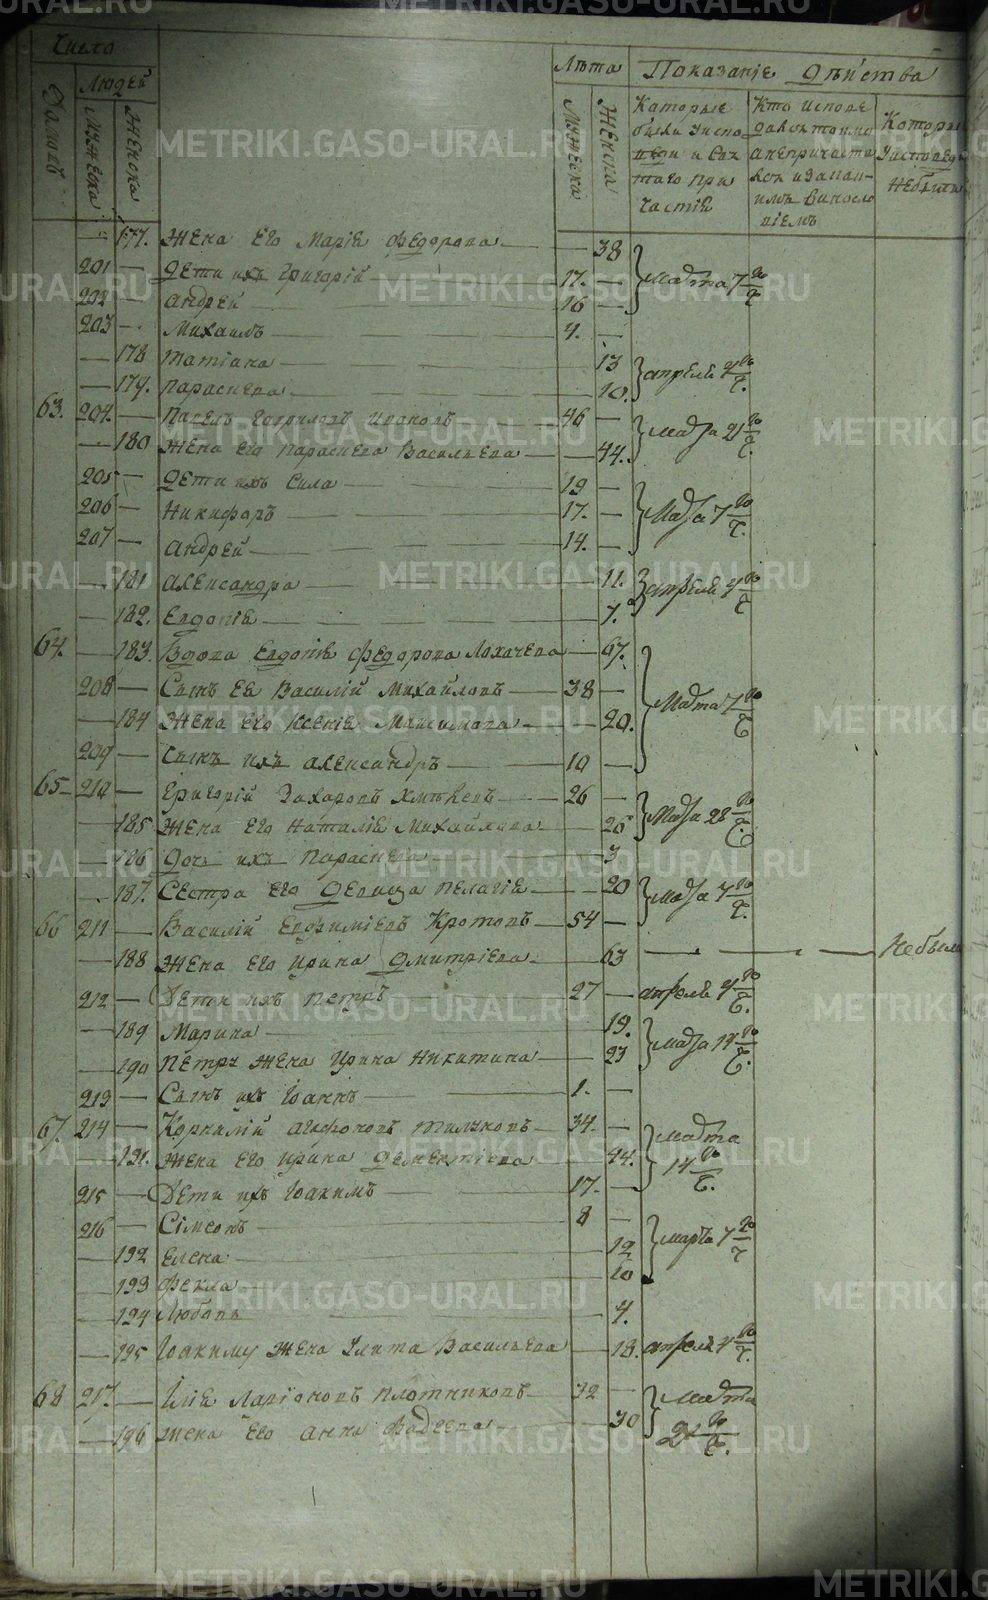 METRIKI.GASO-URAL.RU
Число
Людей
Домовъ
Мужеска
Женска
Лѣта
Мужеска
Женска
Показанїе Дѣйства
Которые были у исповеди и Святаго Причастїя
Кто исповедался токмо а не причастился и за каким винословїемъ
Которые у исповеди не были
177. Жена Его Марiя Федорова 38
201 Дети ихъ Григорiй 17. Марта 7 го ч.
202 Андрей 16
203 Михаилъ 4.
178 Татiана 13
179. Параскева 10. апреля 4 го ч.
63. 204. Павелъ Гаврилов Ивановъ 46
180 Жена Его Параскева Васильева 44. Марта 21 го ч.
205 Дети ихъ Сила 19
206 Никифоръ 17. Марта 7 го ч.
207 Андрей 14.
181 Александра 11. апреля 4 го ч.
182. Евдокiя 7.
64. 183. Вдова Евдокiя Федорова Лохачева 67.
208 Сынъ Ея Василiй Михайловъ 38
184 Жена Его Ксенiя Максимова 20. Марта 7 го ч.
209 Сынъ ихъ Александръ 10
65 210 Григорiй Захаровъ Хмѣлевъ 26
185 Жена Его Наталiя Михайлова 26 Марта 28 го ч.
186 Дочь ихъ Параскева 3
187. Сестра Его Девица Пелагiя 20 Марта 7 го ч.
66 211 Василiй Евфимiевъ Кротовъ 54
188 Жена Его Ирина Дмитрiева 63 Небыли
212 Дети ихъ Петръ 27 апреля 4 го ч.
189 Марина 19.
190 Петру жена Ирина Никитина 23 Марта 14 го ч.
213 Сынъ ихъ Iоаннъ 1.
67. 214 Корнилiй Агафоновъ 34.
191. Жена Его Ирина Дементiева 44. Марта 14 го ч.
215 Дети ихъ Iоакимъ 17.
216 Сiмеонъ 8
192 Елена 12 Марта 7 го ч.
193 Фекла 10
194 Любовь 4.
195 Iоакиму жена Улита Васильева 18. апреля 4 го ч.
68 217. Илiя Ларiоновъ Плотниковъ 32
196 Жена Его Анна Фадеева 30 Марта 21 го ч.